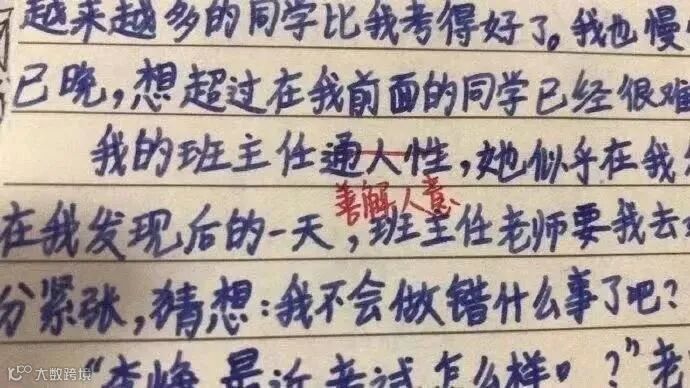 越来越多的同学比我考得好了。我也慢
已晚,想超过在我前面的同学已经很难
我的班主任通人性,她似乎在我
善解人意
在我发现后的一天,班主任老师要我去
分紧张,猜想:我不会做错什么事了吧?
最近考试怎么样。?”老
大数跨境